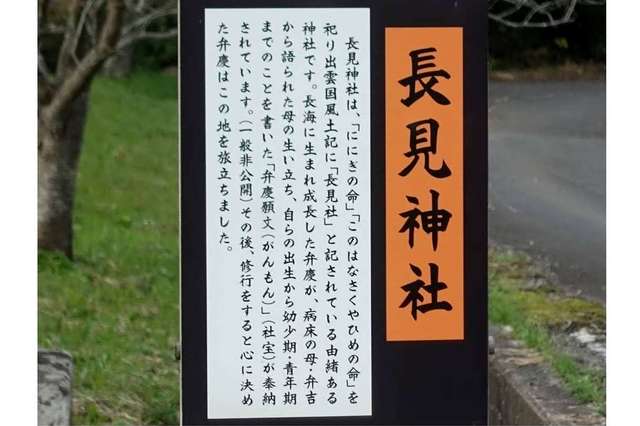 長見神社
長見神社は、「ににぎの命」「このはなさくやひめの命」を
祀り出雲国風土記に「長見社」と記されている由緒ある
神社です。長海に生まれ成長した弁慶が、病床の母・弁吉
から語られた母の生い立ち、自らの出生から幼少期・青年期
までのことを書いた「弁慶願文(がんもん)」(社宝)が奉納
されています。(一般非公開)その後、修行をすると心に決め
た弁慶はこの地を旅立ちました。